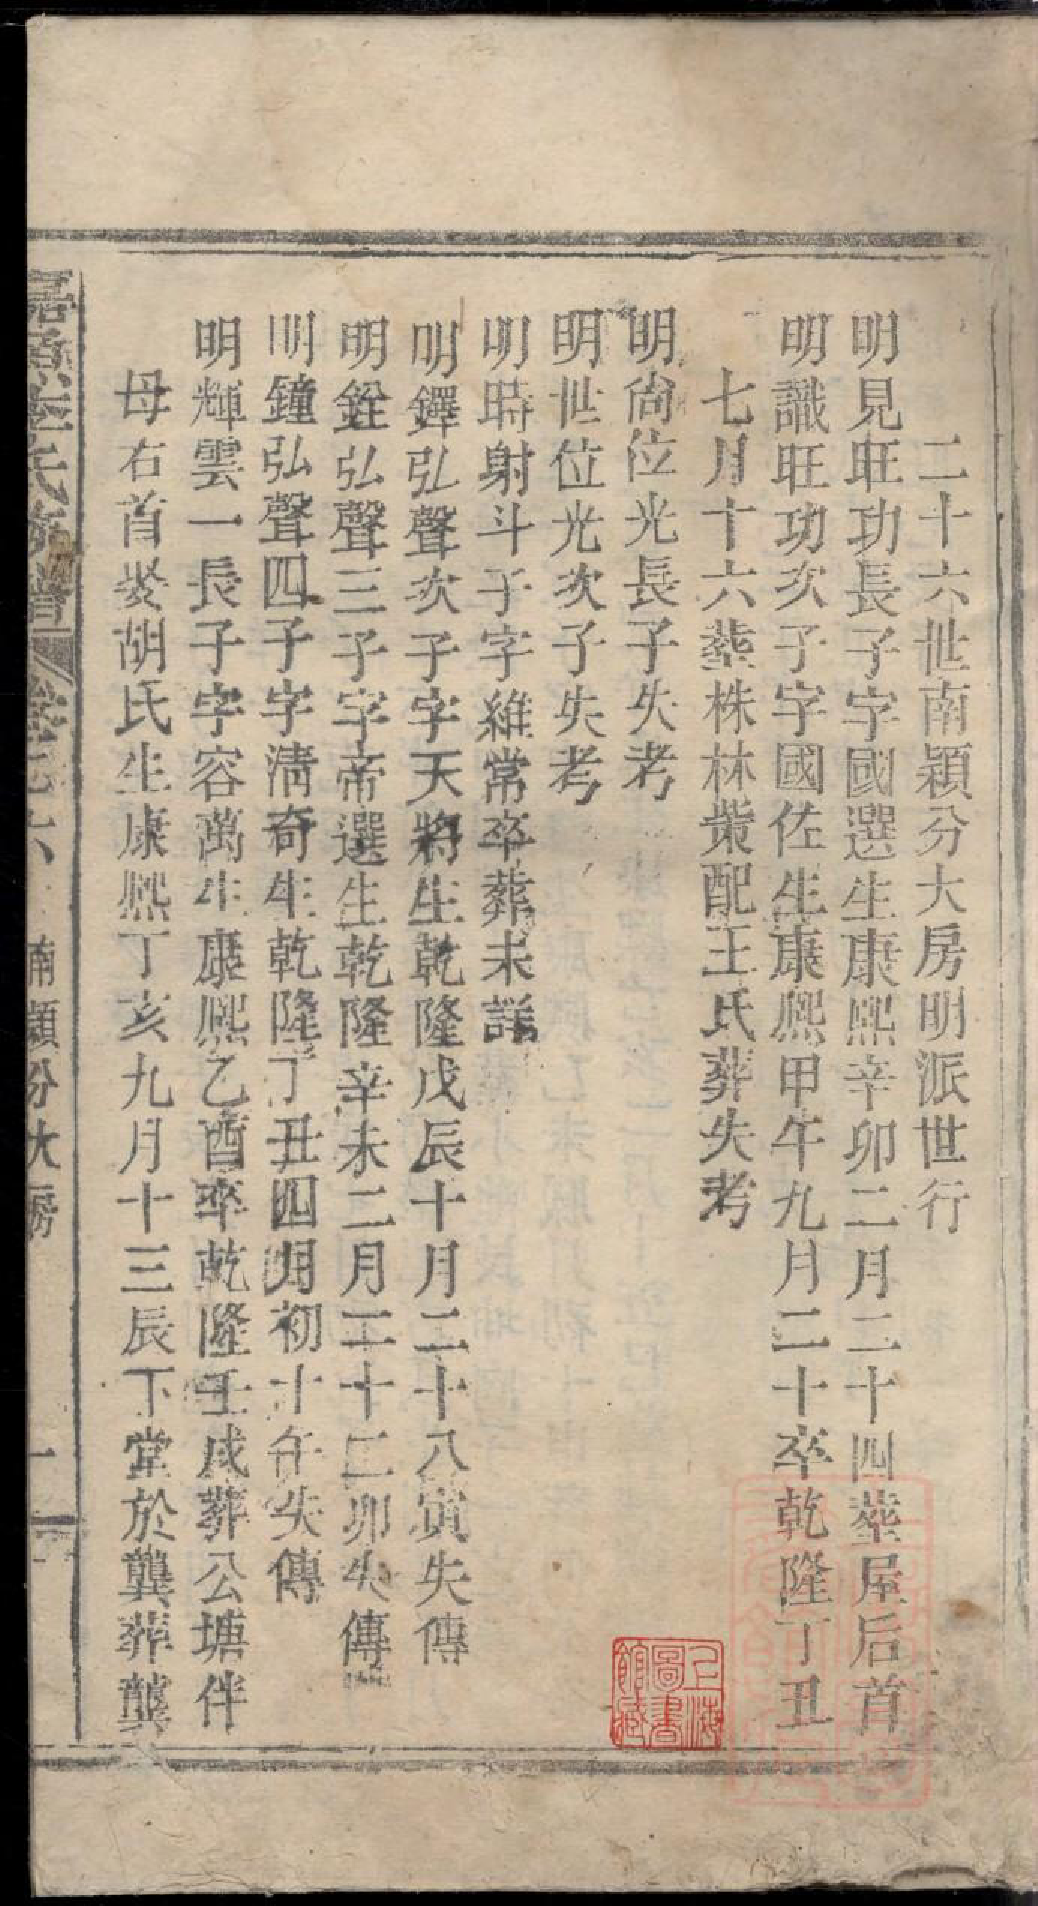 二十六世南穎分大房明派世行
明見旺功長子字國選生康熙辛卯二月二十四塟屋后首
明識旺功次子字國佐生康熙甲午九月二十卒乾隆丁丑
七月十六塟株林棠配王氏葬失考
明尙位光長子失考
明世位光次子失考
明時射斗子字維常卒葬未詳
明鐸弘聲次子字天將生乾隆戊辰十月二十八寅失傳
明銓弘聲三子字帝選生乾隆辛未二月二十二卯失傳
明鐘弘聲四子字淸奇生乾隆丁丑四月初十午失傳
明輝雲一長子字容萬生康熙乙酉卒乾隆壬戌葬公塘伴
母右首娑胡氏生康熙丁亥九月十三辰下堂於龔葬龔
嘉魚李氏譜 卷之六 南穎分大房 一
上海圖書館藏